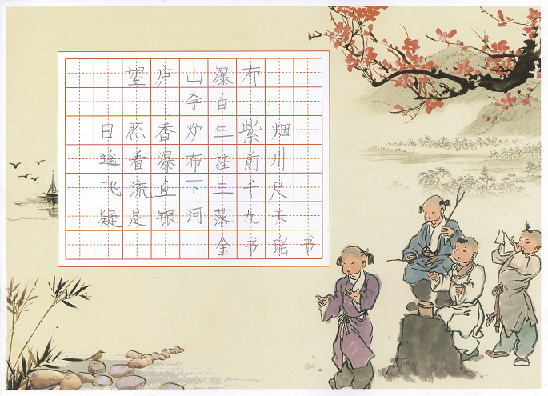 望庐山瀑布
李白
日照香炉生紫烟
遥看瀑布挂前川
飞流直下三千尺
疑是银河落九天
余书 书